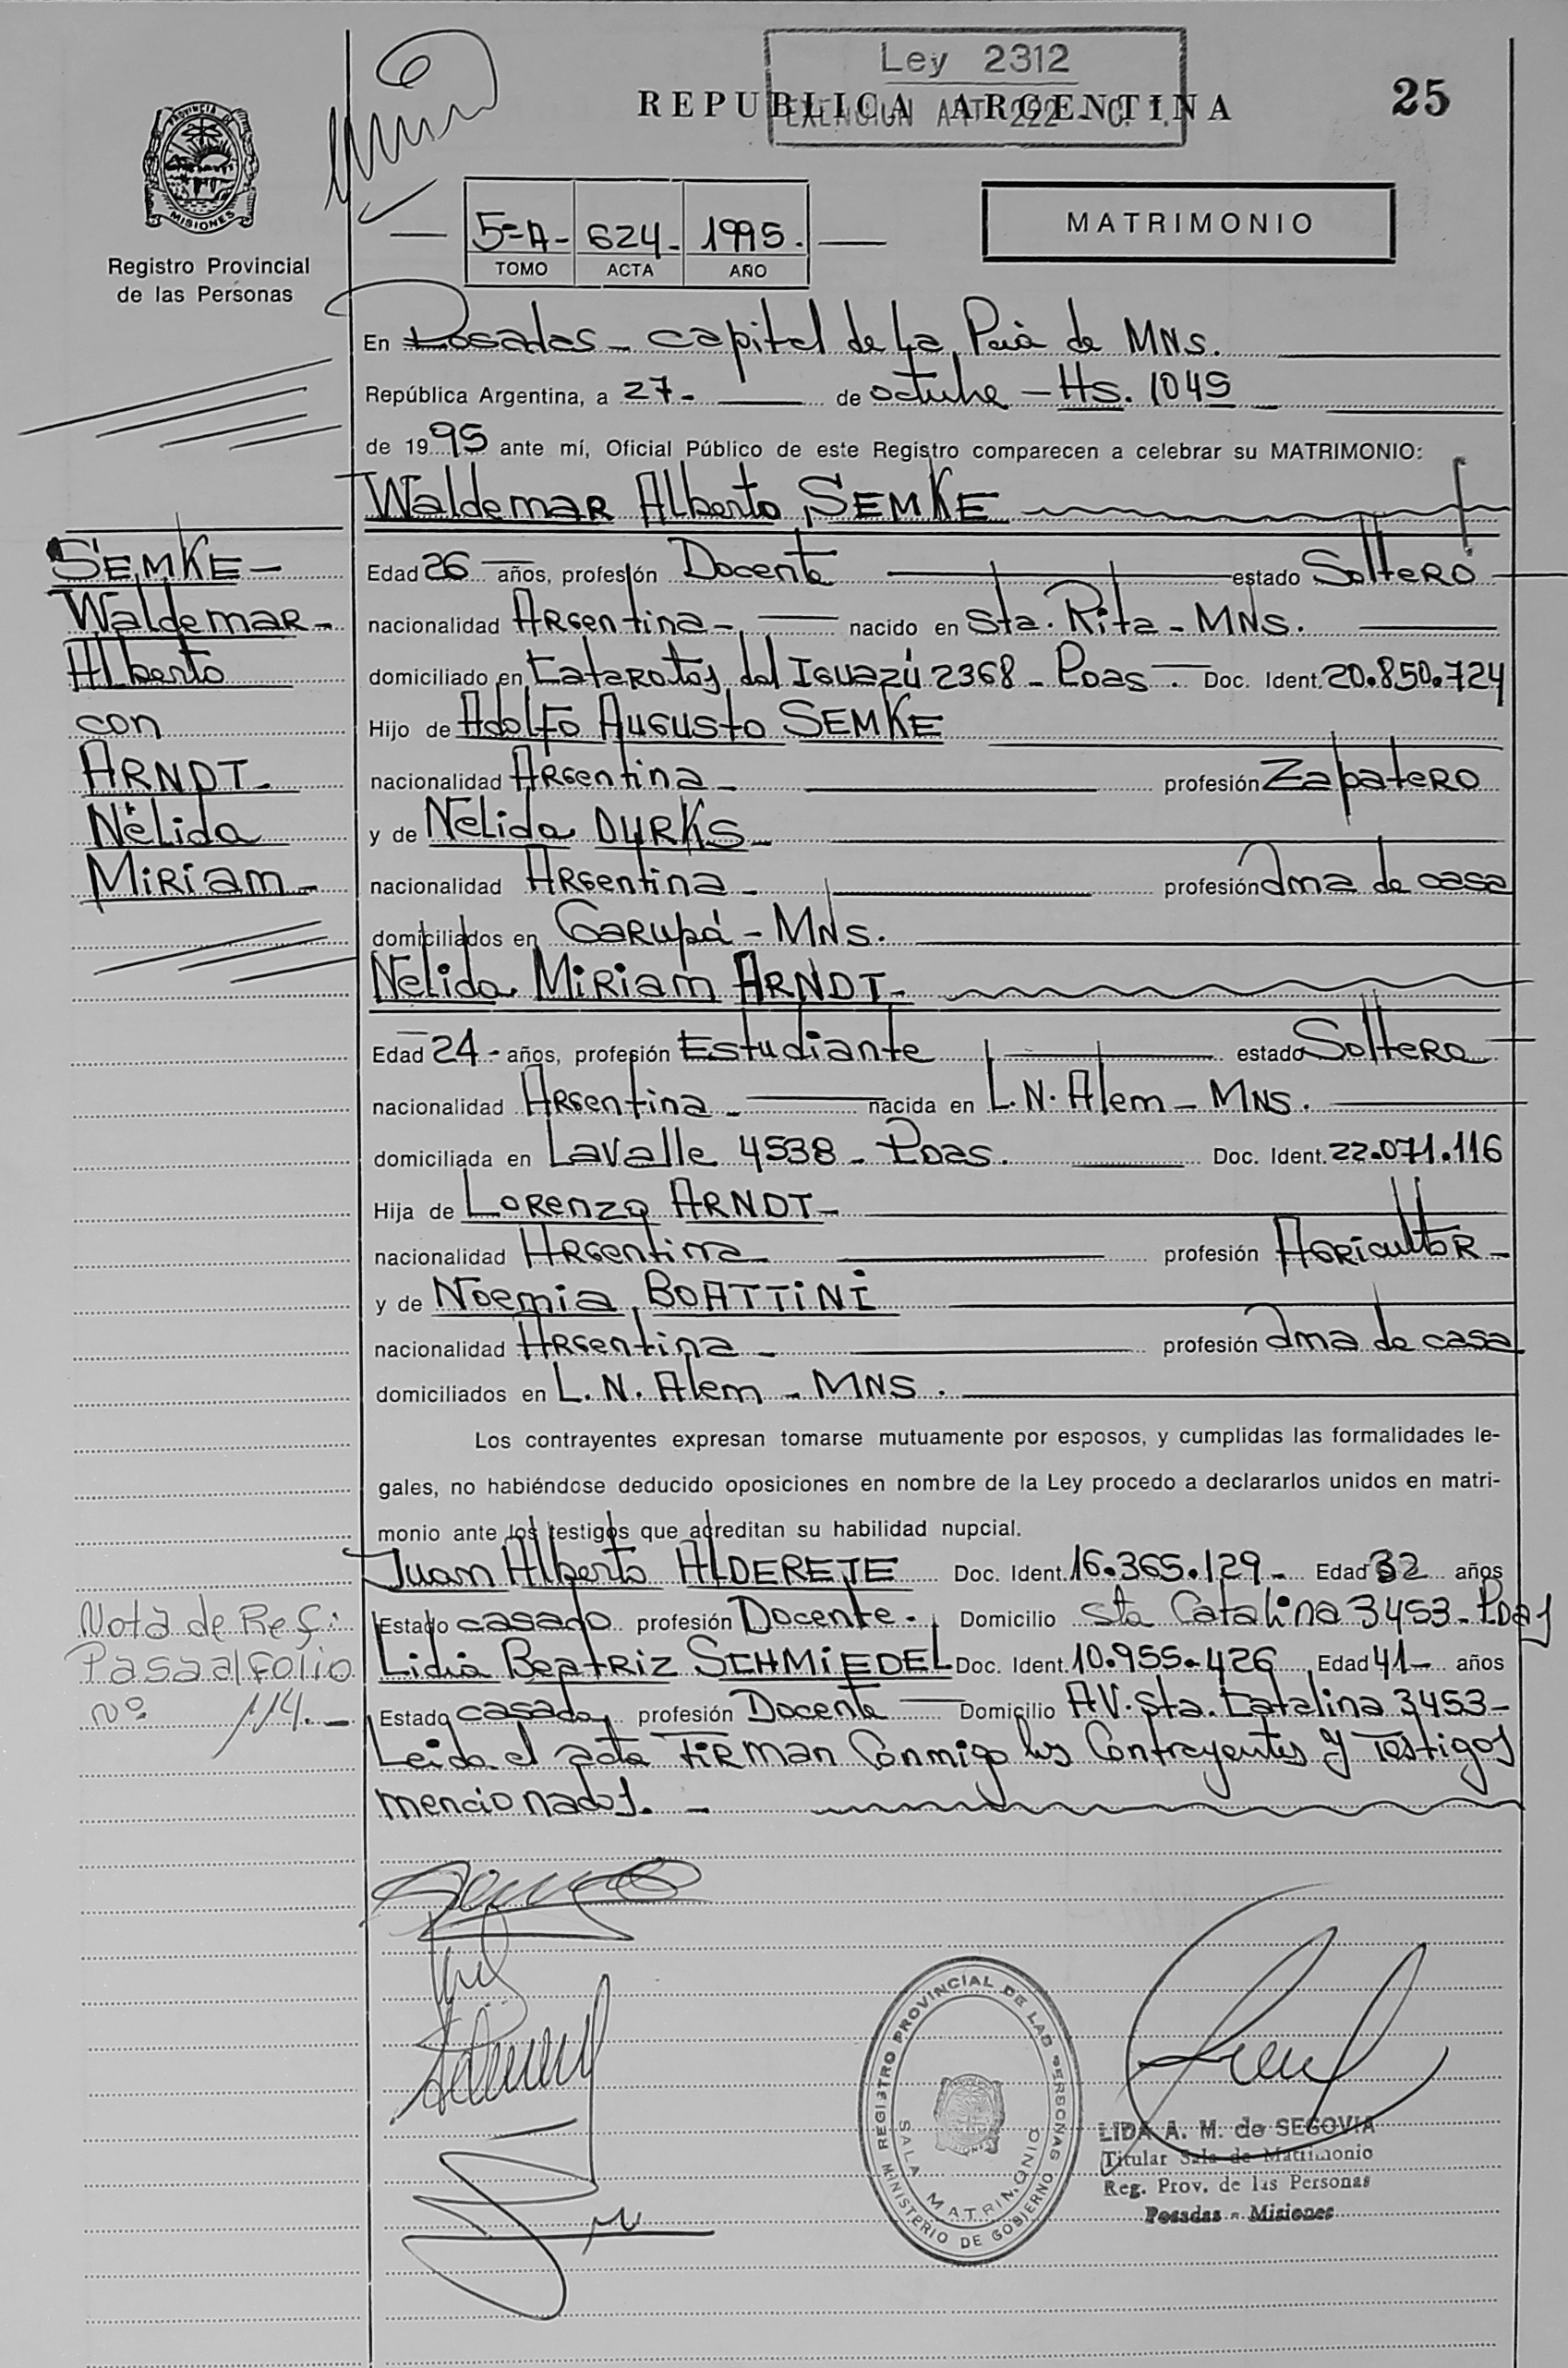 Ley 2312
REPUBLICA ARGENTINA
EXENCION ART 222 - C. 1.
25
PROVINCIA DE
MISIONES
Registro Provincial
de las Personas
5=A- 624- 1995.
TOMO ACTA AÑO
MATRIMONIO
En Posadas - capital de la Pcia de MNS.
República Argentina, a 27- de octubre - Hs. 1045
de 1995 ante mí, Oficial Público de este Registro comparecen a celebrar su MATRIMONIO:
Waldemar Alberto SEMKE
SEMKE-
Waldemar-
Alberto
con
ARNDT-
Nélida
Miriam-
Edad 26 años, profesión Docente estado Soltero
nacionalidad Argentina- nacido en Sta. Rita - MNS.
domiciliado en Cataratas del Iguazú 2368 - Pdas - Doc. Ident. 20.850.724
Hijo de Adolfo Augusto SEMKE
nacionalidad Argentina- profesión Zapatero
y de Nelida DYRKS-
nacionalidad Argentina- profesión ama de casa
domiciliados en Garupá - MNS.
Nelida Miriam ARNDT-
Edad 24- años, profesión Estudiante estado Soltera
nacionalidad Argentina- nacida en L.N. Alem - MNS.
domiciliada en Lavalle 4538 - Pdas. Doc. Ident. 22.071.116
Hija de Lorenzo ARNDT-
nacionalidad Argentina profesión Agricultor-
y de Noemia BOATTINI
nacionalidad Argentina- profesión ama de casa
domiciliados en L. N. Alem - MNS.
Los contrayentes expresan tomarse mutuamente por esposos, y cumplidas las formalidades le-
gales, no habiéndose deducido oposiciones en nombre de la Ley procedo a declararlos unidos en matri-
monio ante los testigos que acreditan su habilidad nupcial.
Juan Alberto ALDERETE Doc. Ident. 16.365.129- Edad 32 años
Estado casado profesión Docente- Domicilio Sta Catalina 3453- Pdas
Lidia Beatriz SCHMIEDEL Doc. Ident. 10.955.426 Edad 41- años
Estado casada profesión Docente Domicilio AV. Sta. Catalina 3453-
Leida el acta firman Conmigo los Contrayentes y Testigos
mencionados. -
Nota de Ref:
Pasa al Folio
nº 114.-
REGISTRO PROVINCIAL DE LAS PERSONAS
MINISTERIO DE GOBIERNO
SALA MATRIMONIO
LIDA A. M. de SEGOVIA
Titular Sala de Matrimonio
Reg. Prov. de las Personas
Posadas - Misiones